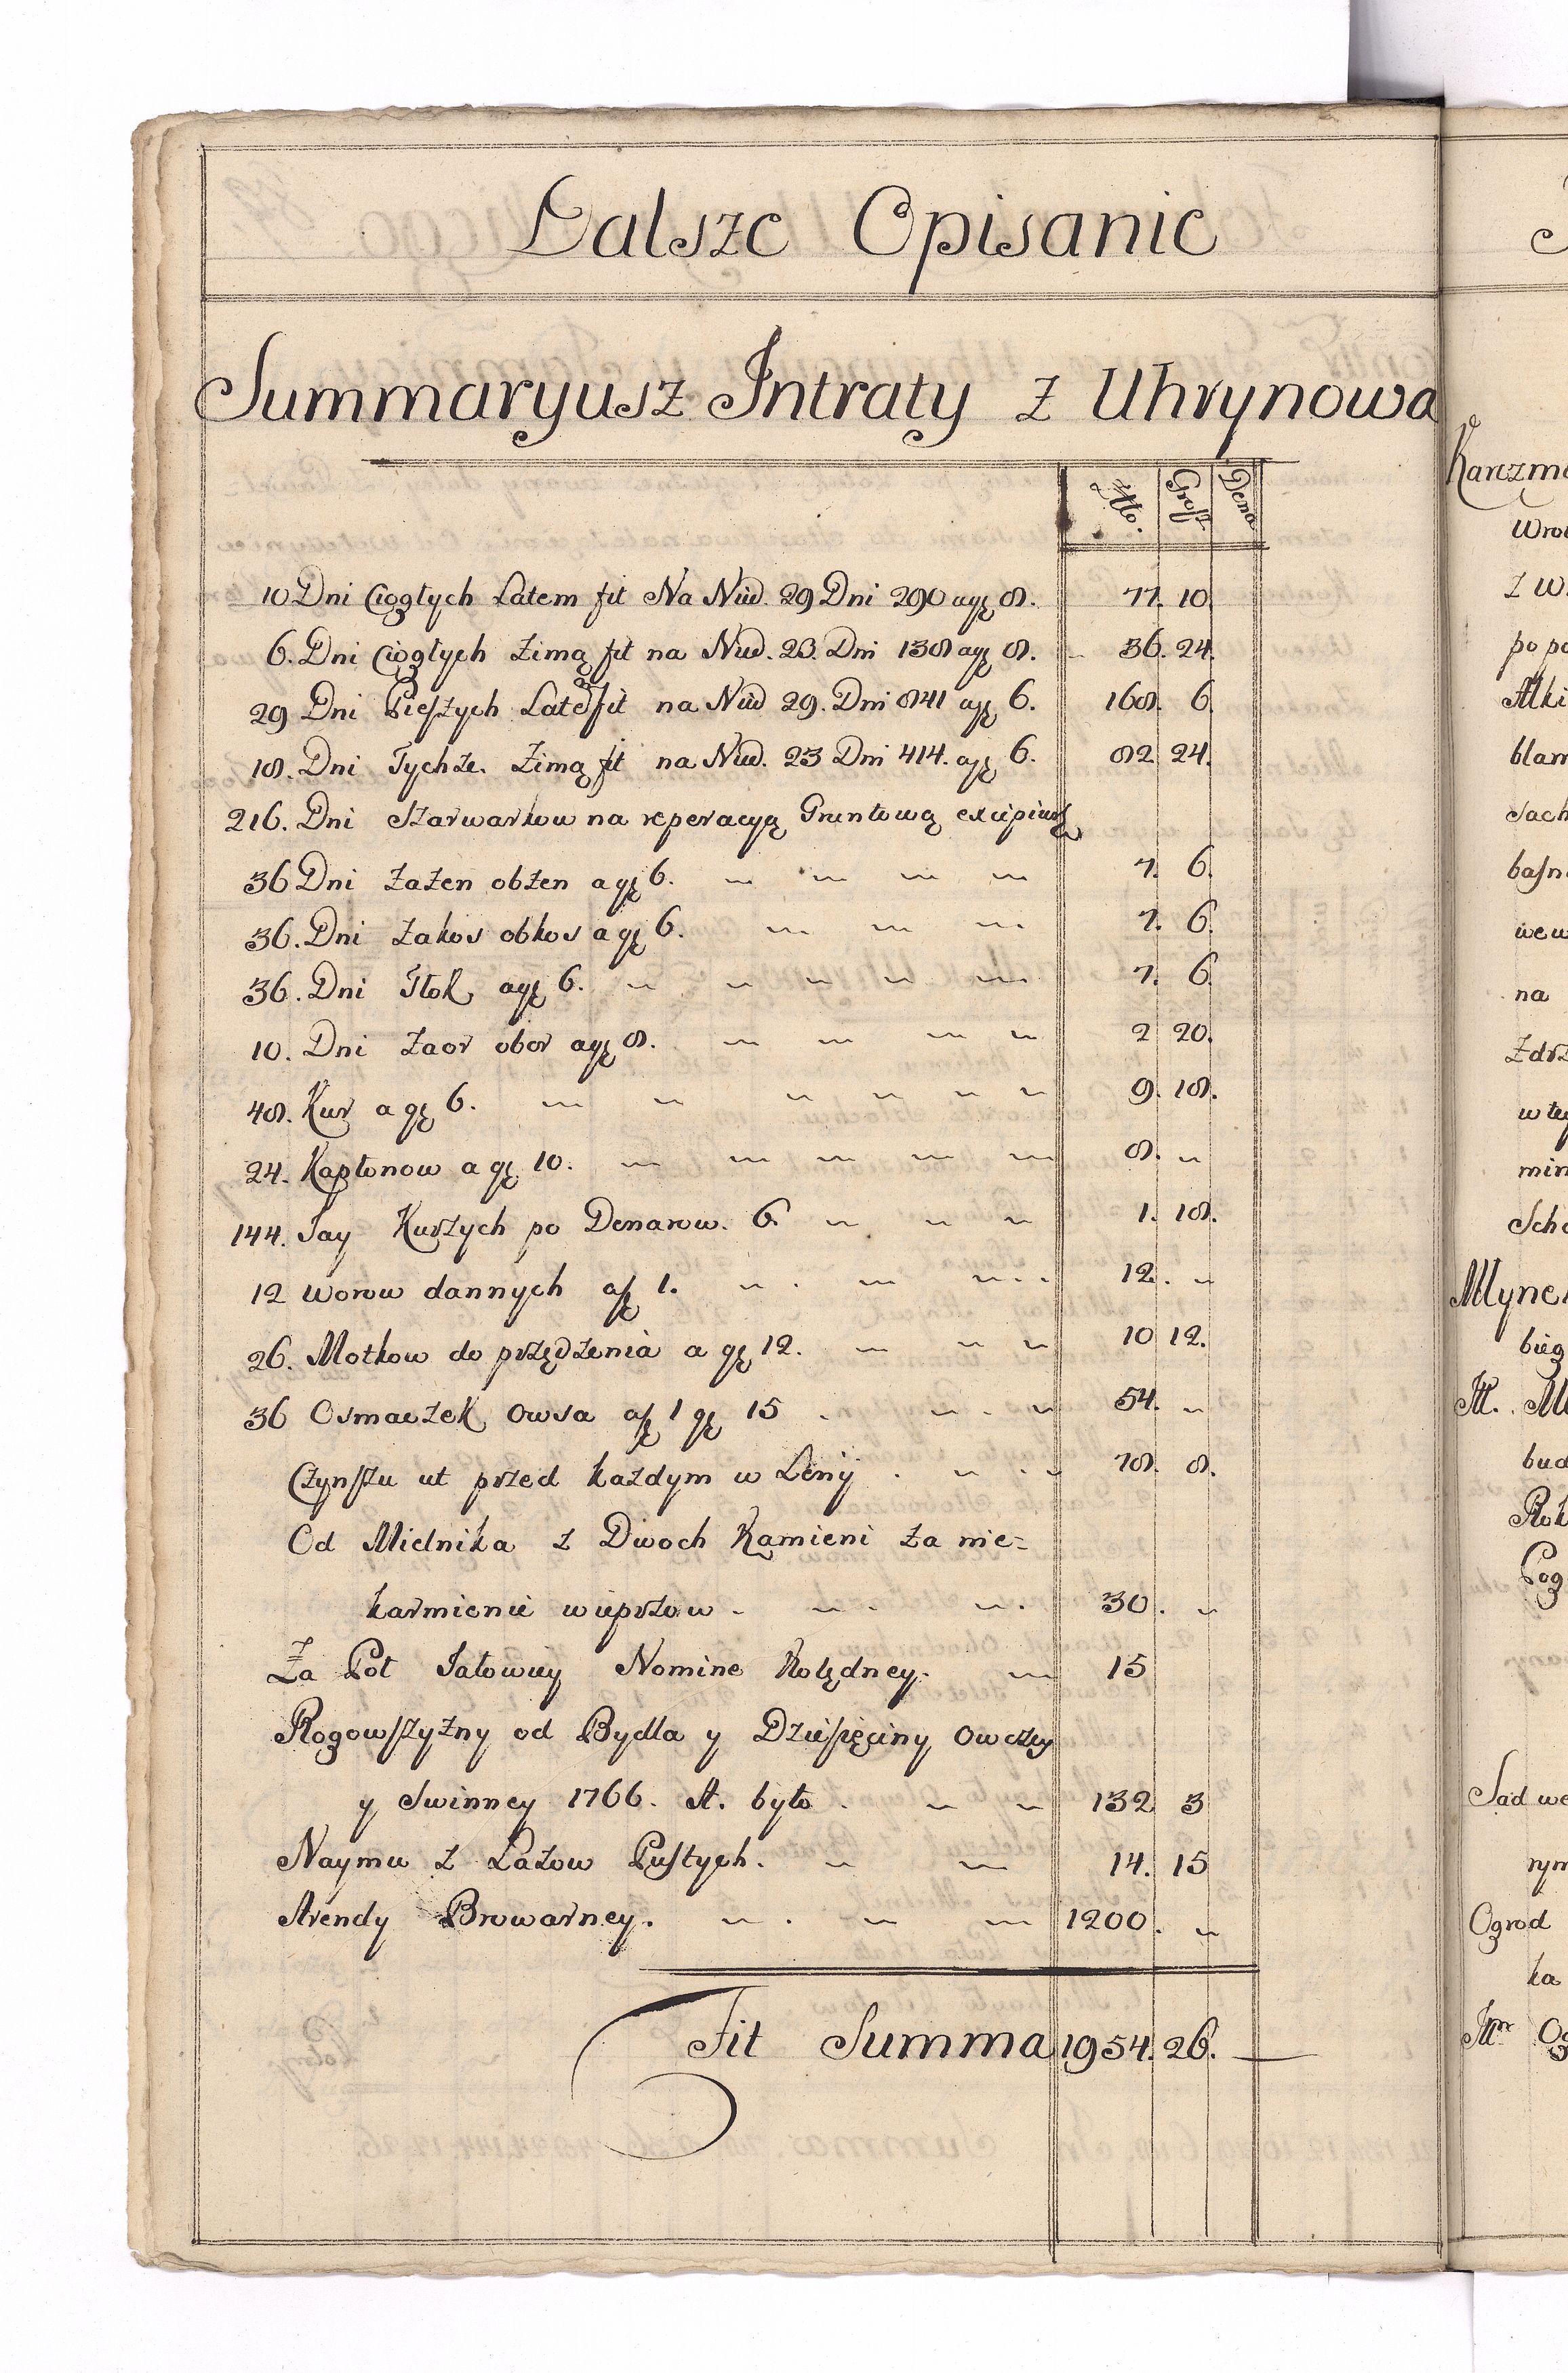 Dalsze Opisanie
Summaryusz Intraty z Uhrynowa
Złło. Groß Dena
10 Dni Ciągłych Latem fit Na Nied. 29 Dni 290 a gę 8. 77. 10
6. Dni Ciągłych Zimą fit na Nied. 23. Dni 138 a gę 8. 36. 24.
29 Dni Pieszych Late fit na Nied 29. Dni 841 a gę 6. 168. 6.
18. Dni Tychże. Zimą fit na Nied. 23 Dni 414. a gę 6. 82 24.
216. Dni Szarwarkow na reperacyą Gruntową
36 Dni Zażen obżen a gę 6. 7. 6.
36. Dni Zakos obkos a gę 6. 7. 6.
36. Dni Tłok a gę 6. 7. 6.
10. Dni Zaor obor a gę 8. 2 20.
48. Kur a gę 6. 9. 18.
24. Kapłonow a gę 10. 8. „
144. Jay Kurzych po Denarow. 6. 1. 18.
12 worow dannych a fę 1. 12. „
26. Motkow do przędzenia a gę 12. 10 12.
36 Osmaczek Owsa a fę 1 gę 15 54. „
Czynszu ut przed każdym w Leniy 78. 8.
Od Mielnika z Dwoch Kamieni za nie=
karmienie wieprzow. 30. „
Za Poł Jałowicy Nomine Kolędney. 15
Rogowszyzny od Bydla y Dziesięciny Owczey
y Swinney 1766. A. było. 132 3
Naymu z Łazow Pustych. 14. 15
Arendy Browarney. 1200. „
Fit Summa 1954. 26.
Karczma
na
Sad we
Ogrod
ka